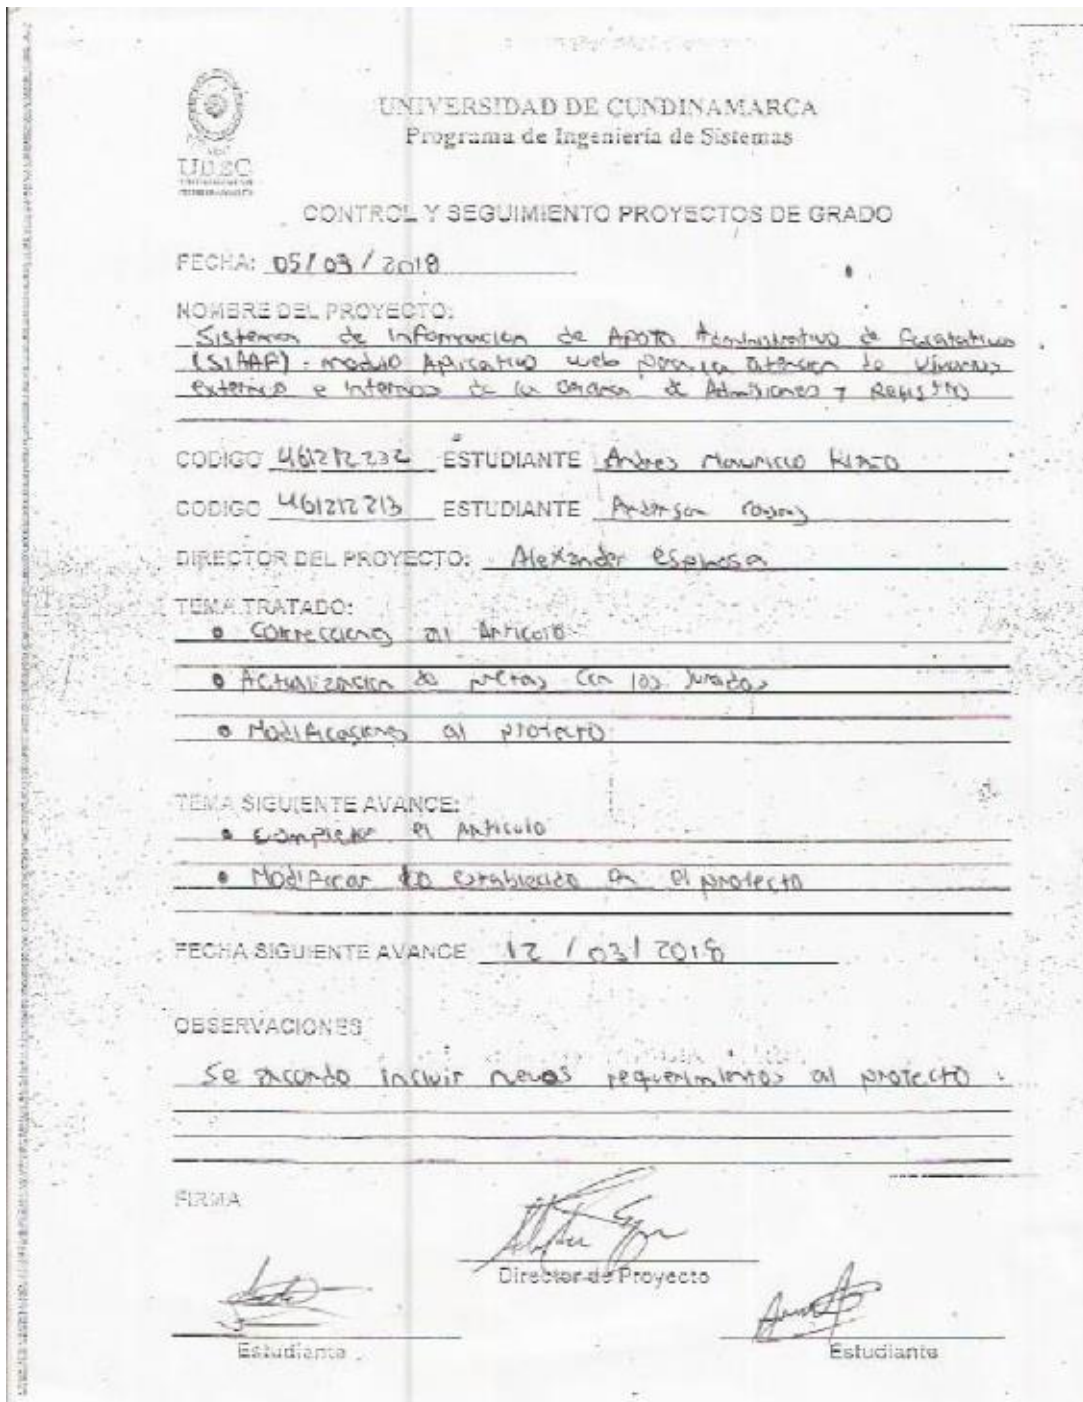 UNIVERSIDAD DE CUNDINAMARCA
Programa de Ingeniería de Sistemas
UDEC
CONTROL Y SEGUIMIENTO PROYECTOS DE GRADO
FECHA: 05/03/2018
NOMBRE DEL PROYECTO:
Sistema de Información de Apoyo Administrativo de
(SIAAF) - modulo Aplicativo web para la atención de Usuarios
externos e internos de la de Admisiones y Registro
CODIGO 461212232 ESTUDIANTE Andres Mauricio
CODIGO 461212213 ESTUDIANTE Anderson
DIRECTOR DEL PROYECTO: Alexander Espinosa
TEMA TRATADO:
• Correcciones al Articulo
• Actualización de con los Jurados
• Modificaciones al proyecto
TEMA SIGUIENTE AVANCE:
• Completar el Articulo
• Modificar lo establecido en el proyecto
FECHA SIGUIENTE AVANCE 12 / 03 / 2018
OBSERVACIONES
Se acordo incluir nevos requerimientos al proyecto.
FIRMA
Director de Proyecto
Estudiante
Estudiante